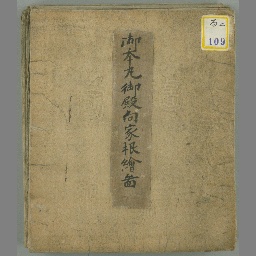 御本丸御殿向家根繪圖
百二
109